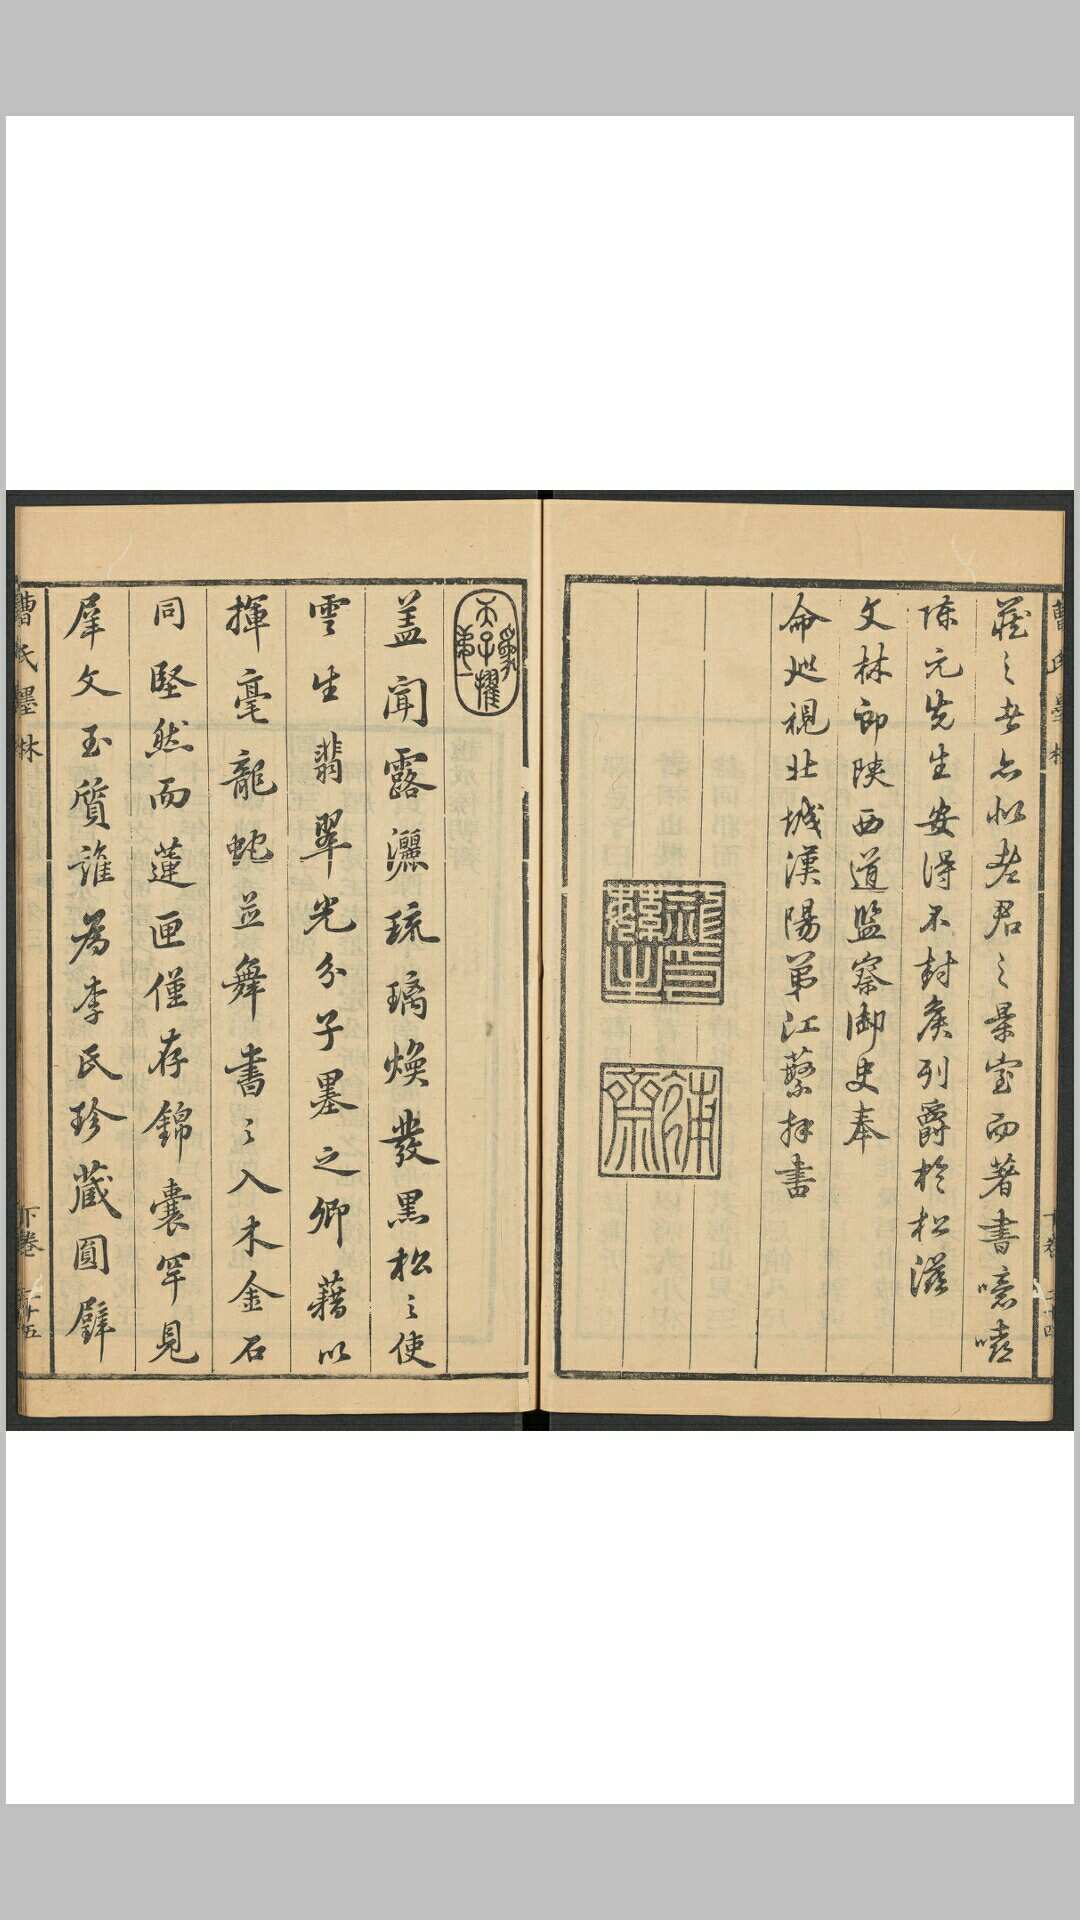 曹氏墨林
下卷
二十四
藏之者亦似老君之景室而著書噫嘻
陳元先生安得不封矦列爵於松滋
文林郎陝西道監察御史奉
命巡視北城漢陽弟江蘩拜書
江蘩之印
補齋
天子擢
第一
蓋聞露灑琉璃煥發黑松之使
雲生翡翠光分子墨之卿藉以
揮毫龍蛇並舞書之入木金石
同堅然而蓮匣僅存錦囊罕見
犀文玉質誰為李氏珍藏圓璧
曹氏墨林
下卷
二十五